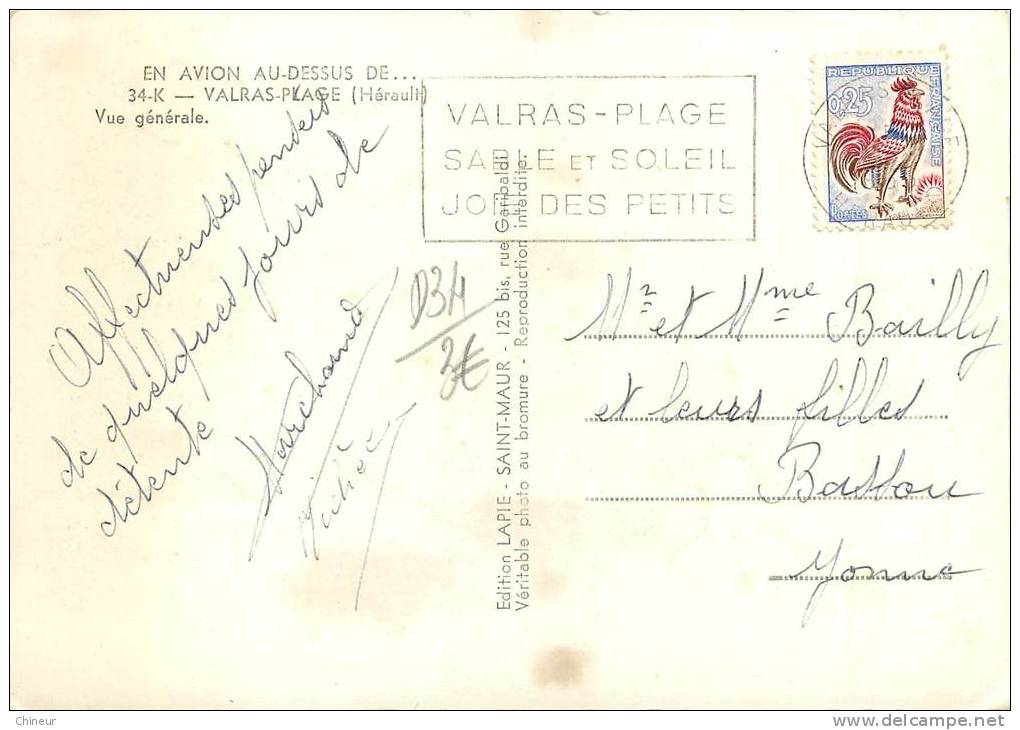 EN AVION AU-DESSUS DE...
34-K — VALRAS-PLAGE (Hérault)
Vue générale.
VALRAS-PLAGE
SABLE ET SOLEIL
JOIE DES PETITS
REPUBLIQUE FRANÇAISE
0,25
POSTES
Affectueuses pensées
de quelques jours de
détente
Marchand
D34
2€
Edition LAPIE - SAINT-MAUR - 125 bis, rue Garibaldi
Véritable photo au bromure - Reproduction interdite.
Mr et Mme Bailly
et leurs filles
Bassou
Yonne
Chineur
delcampe.net